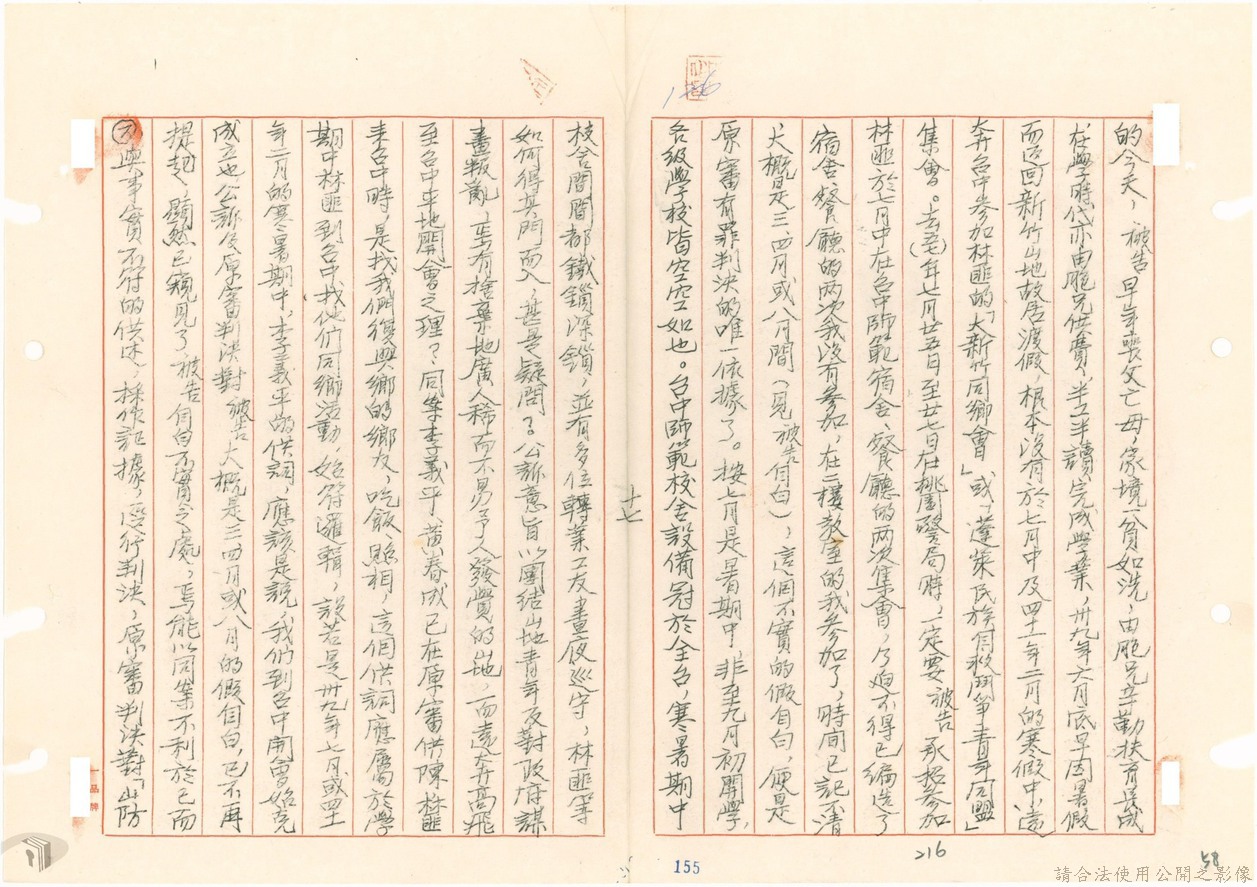 的今天，被告早年喪父亡母，家境一貧如洗，由胞兄辛勤扶育長成
在學時代亦由胞兄供費，半工半讀完成學業，卅九年六月底早因暑假
而返回新竹山地故居渡假，根本沒有於七月中及四十一年二月的寒假中遠
奔台中參加林匪的「大新竹同鄉會」或「蓬萊民族自救鬥爭青年同盟」
集會。去(五七)年七月廿五日至廿七日在桃園警局時，一定要被告承招參加
林匪於七月中在台中師範宿舍、餐廳的兩次集會，乃迫不得已編造了
宿舍餐廳的兩次我沒有參加，在二樓教室的我參加了，時間已記不清
大概是三、四月或八月間（見被告自白），這個不實的假自白，便是
原審有罪判決的唯一依據了。按七月是暑期中，非至九月初開學，
各級學校皆空空如也。台中師範校舍設備冠於全台，寒暑期中
校舍間間都鐵鎖深鎖，並有多位轉業工友晝夜巡守，林匪等
如何得其門而入，甚是疑問。公訴意旨以團結山地青年反對政府謀
畫叛亂，焉有捨棄地廣人稀而不易予人發覺的山地，而遠奔高飛
至台中平地開會之理？同案李義平、黃春成已在原審供陳林匪
來台中時，是找我們復興鄉的鄉友，吃飯、照相，這個供詞應屬於學
期中林匪到台中找他們同鄉活動，始符邏輯，設若是卅九年七月或四十一
年二月的寒暑期中，李義平的供詞，應該是說，我們到台中開會始克
成立也公訴及原審判決對被告大概是三四月或八月的假自白，已不再
提起，顯然已窺見了被告自白不實之處，焉能以同案不利於己而
與事實不符的供述，採作証據，逕行判決，原審判決對「山防
十七
155
216
58
品牌
請合法使用公開之影像